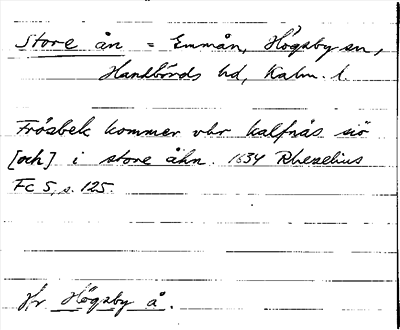 Store ån = Emmån, Högsby sn,
Handbörds hd, Kalm. l.
Frösbek kommer vhr kalfnäs siö
[och] i store åhn. 1634 Rhezelius
Fc 5, s. 125.
Jfr Högsby å.